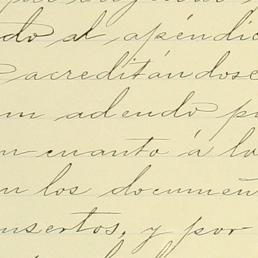 do al apéndic
acreditándose
m adendo p
n cuanto á lo
n los documen
nsertos, y por